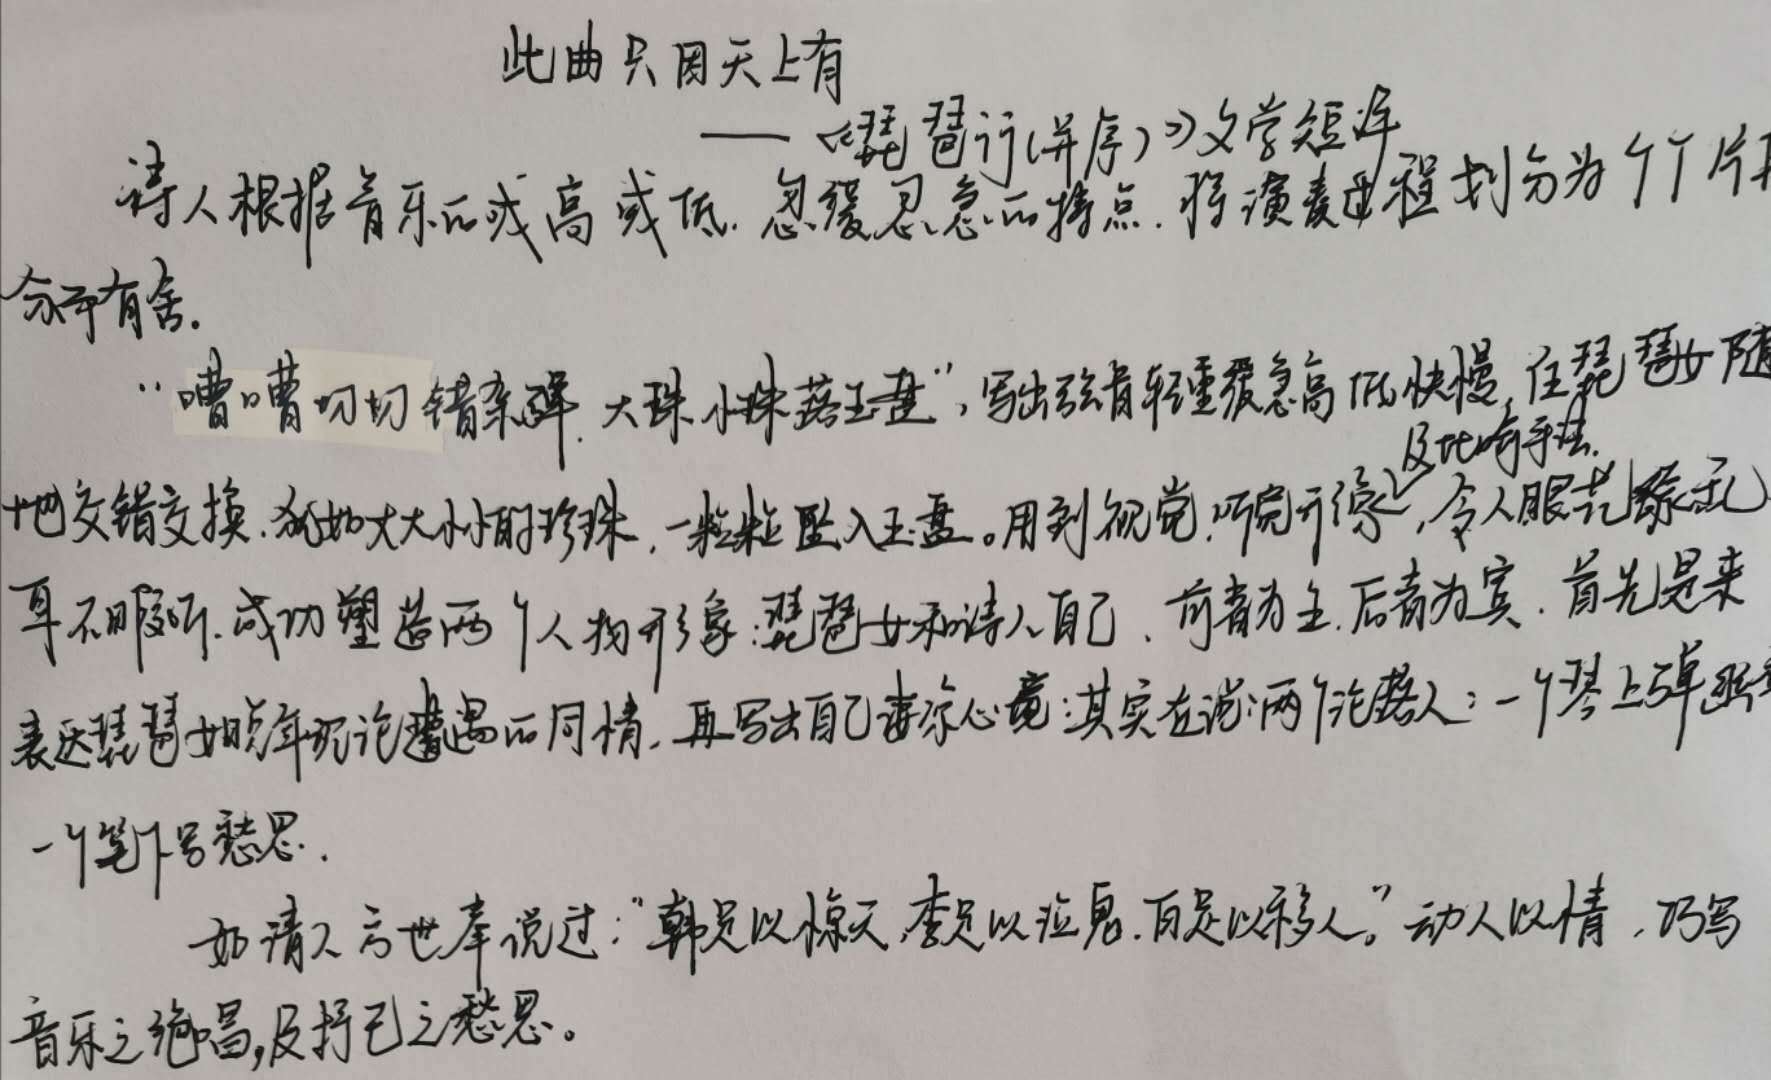 此曲只因天上有
——《琵琶行(并序)》文学短评
诗人根据音乐的或高或低.忽缓忽急的特点.将演奏过程划分为个个片
有舍.
“嘈嘈切切错杂弹.大珠小珠落玉盘”,写出弦音轻重缓急高低快慢,任琵琶女随
及比喻手法.
地交错交换.犹如大大小小的珍珠,一粒粒坠入玉盘。用到视觉.听觉形象,令人眼花缭乱
耳不暇听.成功塑造两个人物形象:琵琶女和诗人自己.前者为主.后者为宾.首先是来
表达琵琶女晚年沉沦遭遇的同情.再写出自己凄凉心境:其实在说:两个沦落人:一个琴上弹
一个笔下写愁思.
如清人方世举说过:“韩足以惊天,李足以泣鬼.白足以移人。”动人以情,巧写
音乐之绝唱,及抒己之愁思。